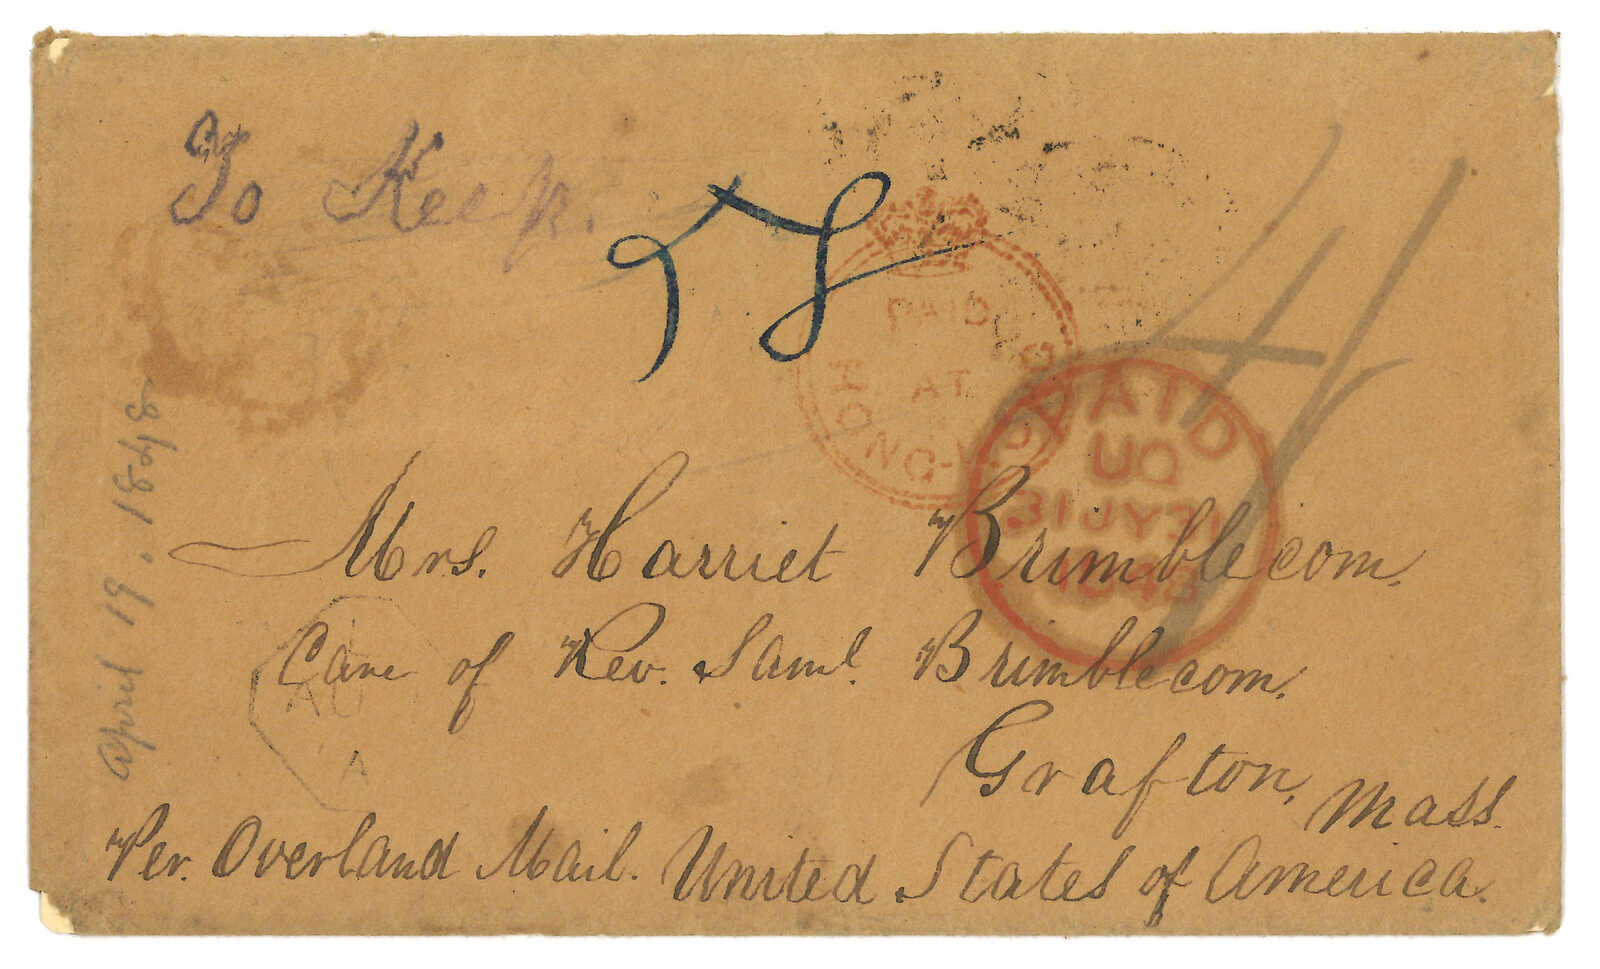 To Keep.
PAID
AT
HONG-KONG
PAID
UQ
31 JY 31
1848
April 19, 1848
Mrs. Harriet Brimblecom,
Care of Rev. Saml. Brimblecom,
Grafton, Mass.
Per. Overland Mail. United States of America.
A